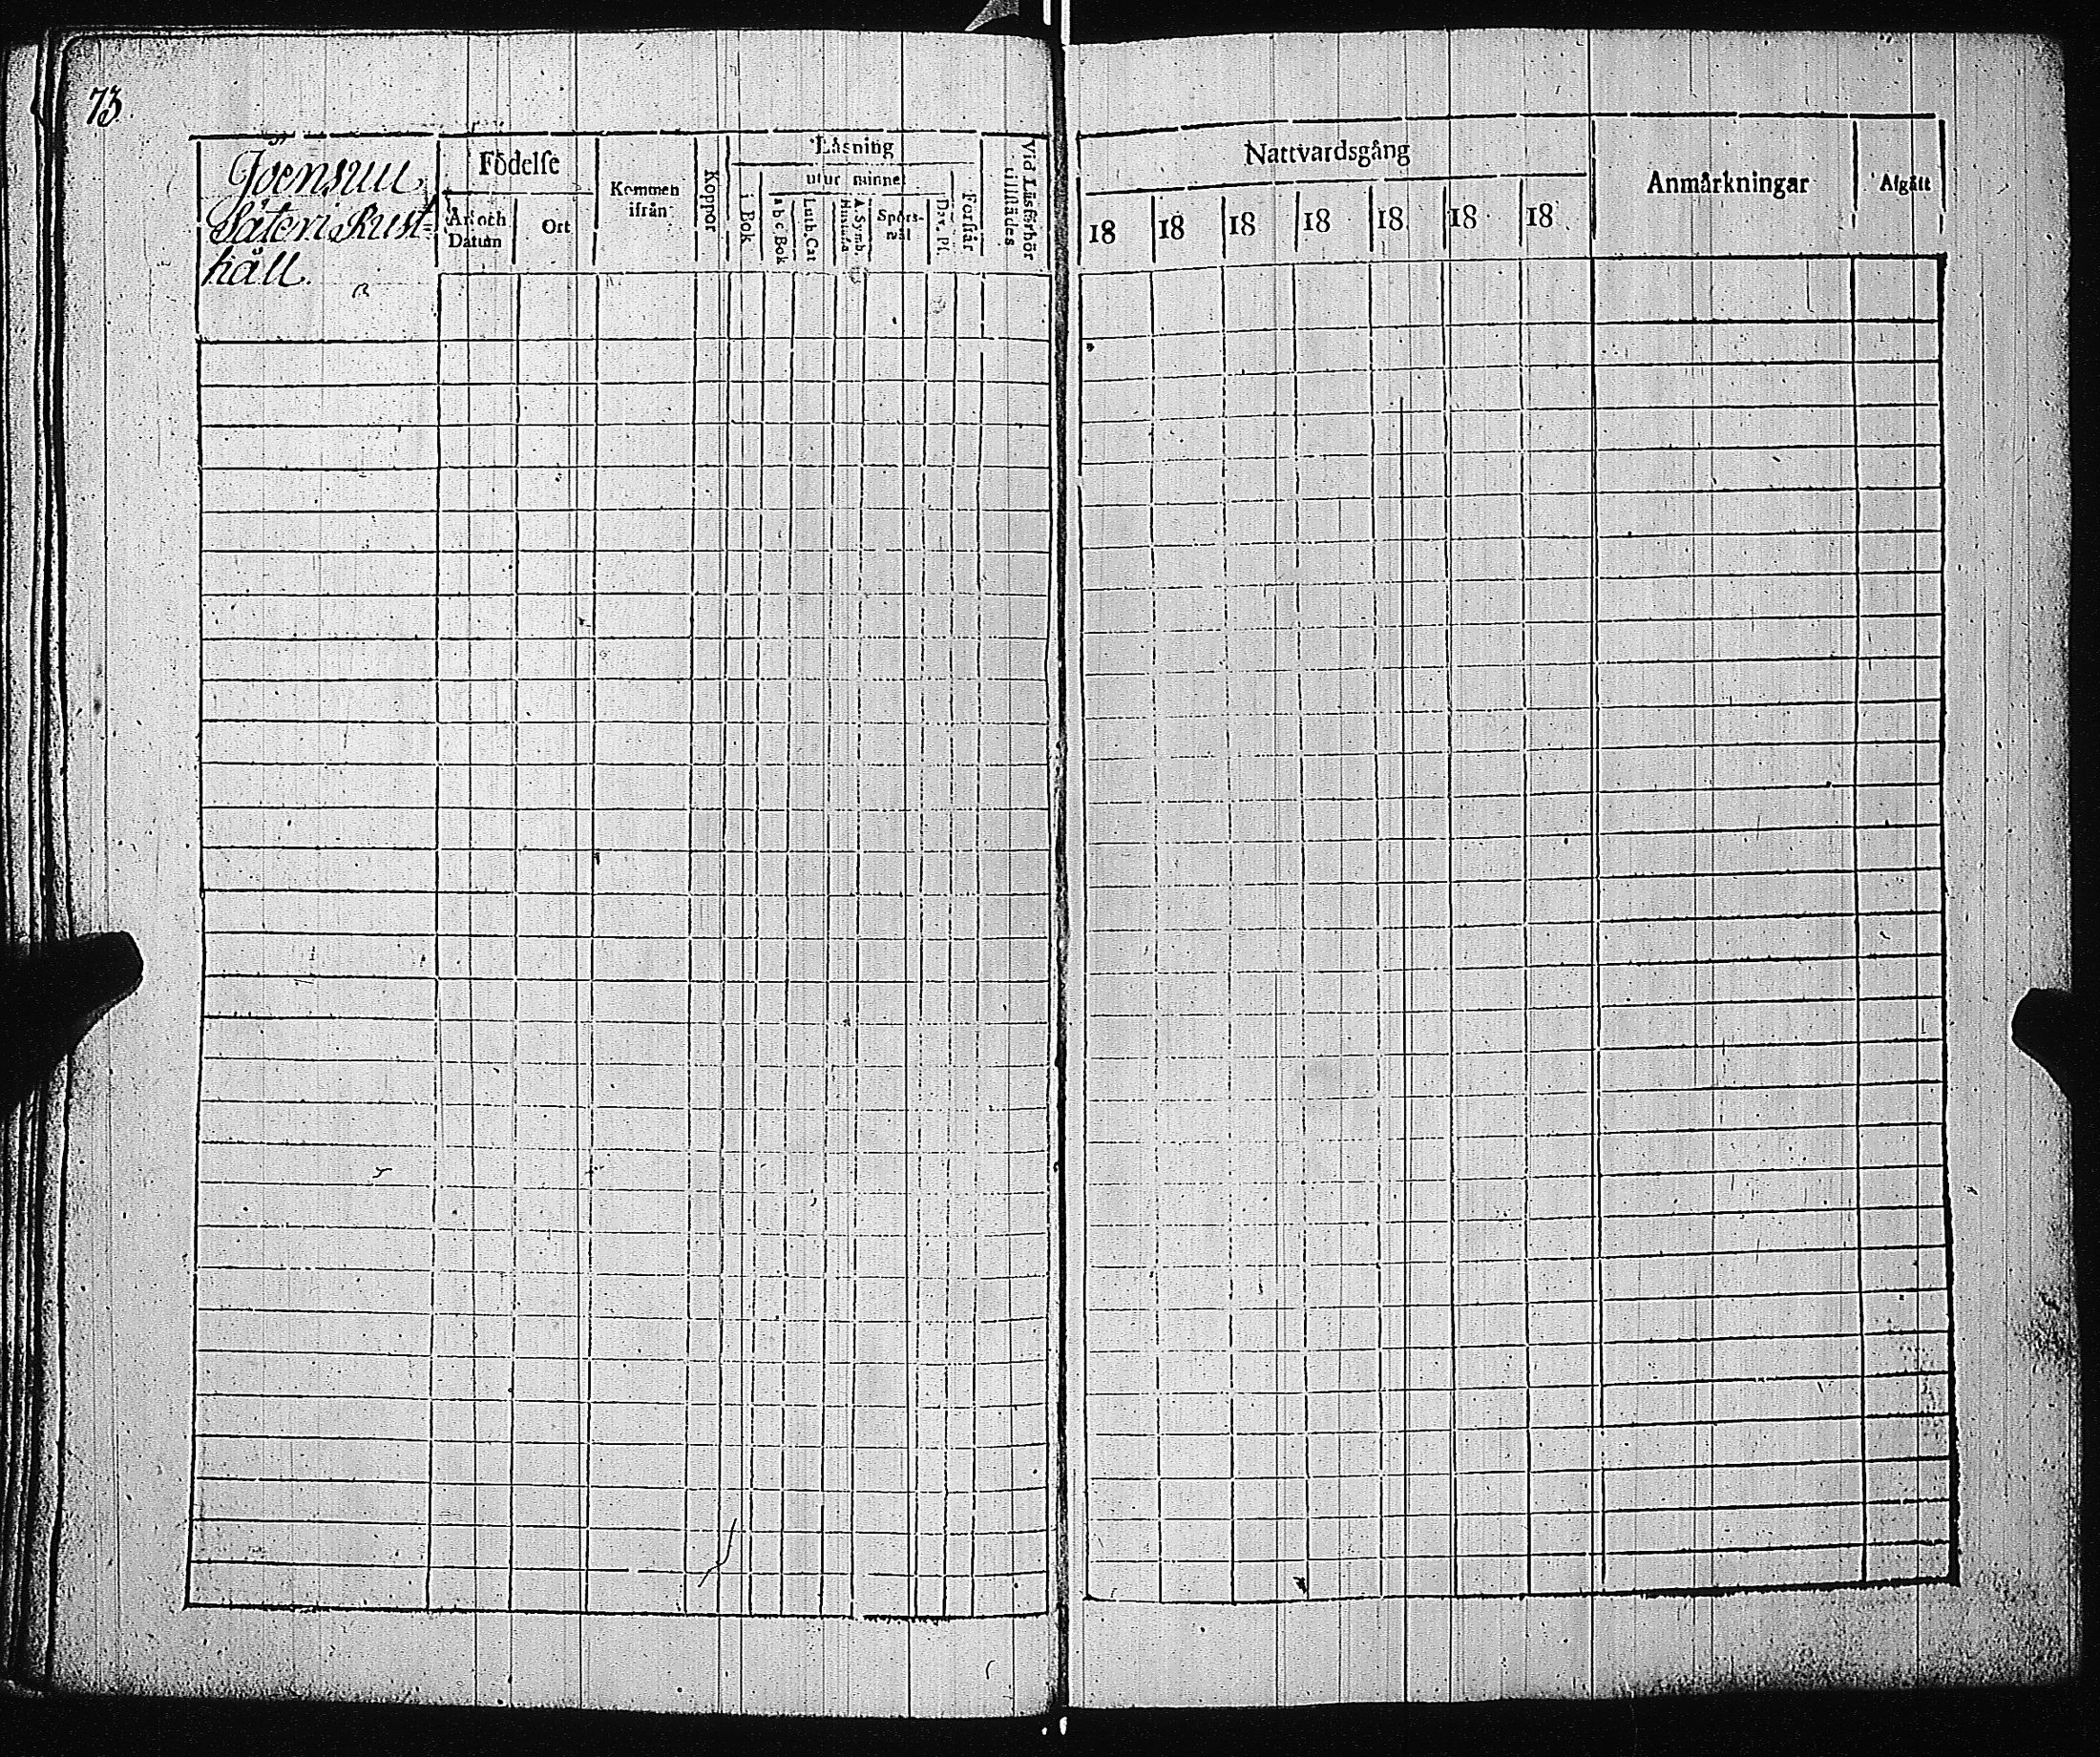 73
Joensuu
Säteri Rust-
håll.
Födelse
År och
Datum
Ort
Kommen
ifrån
Koppor
Läsning
utur minnet
i Bok
a b c Bok
Luth. Cat
Hustafla
A. Symb.
Spörs-
mål
Dav. Ps.
Förstår
Vid Läsförhör
tillstädes
Nattvardsgång
18 18 18 18 18 18 18
Anmärkningar
Afgått